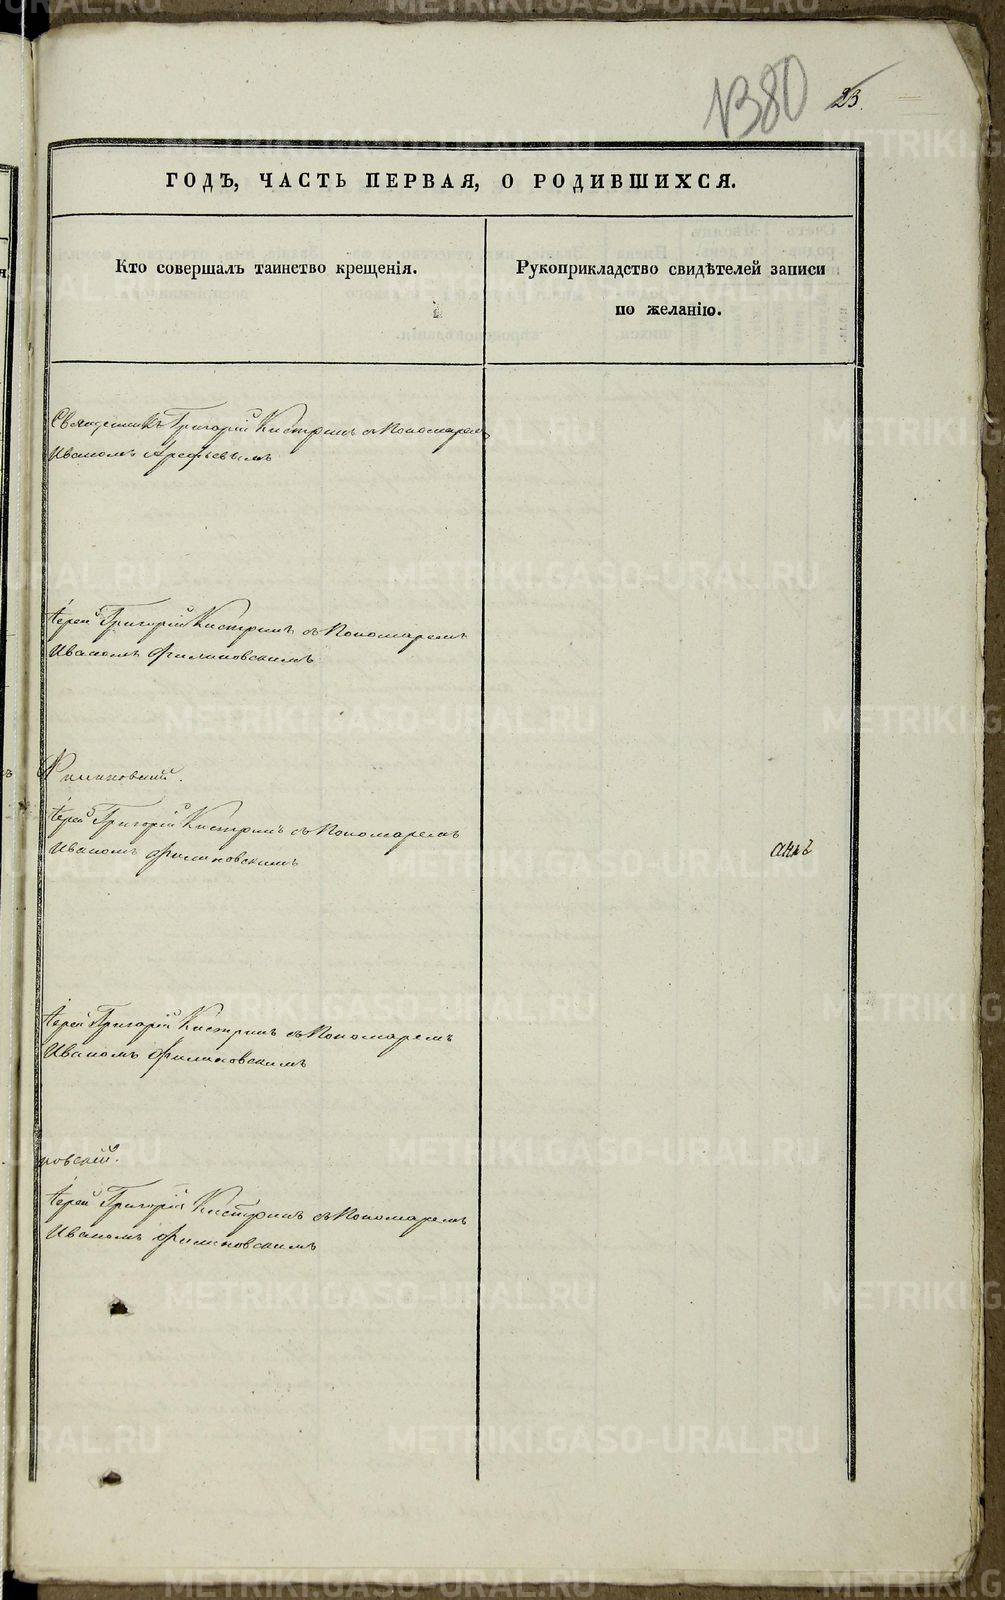 1380
23.
ГОДЪ, ЧАСТЬ ПЕРВАЯ, О РОДИВШИХСЯ.
Кто совершалъ таинство крещенія.
Рукоприкладство свидѣтелей записи
по желанію.
Священникъ Григорій Кистринъ съ Пономаремъ
Иваномъ Арефьевымъ
Іерей Григорій Кистринъ съ Пономаремъ
Иваномъ Филиповскимъ
Филиповскій.
Іерей Григорій Кистринъ съ Пономаремъ
Иваномъ Филиповскимъ
Іерей Григорій Кистринъ съ Пономаремъ
Иваномъ Филиповскимъ
повскій.
Іерей Григорій Кистринъ съ Пономаремъ
Иваномъ Филиповскимъ
METRIKI.GASO-URAL.RU